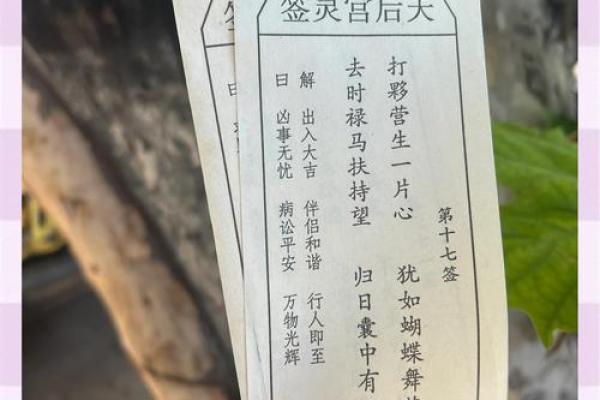 天后宫灵签
第十七签
打夥营生一片心 犹如蝴蝶舞
去时禄马扶持望 归日囊中有
解 出入大吉 伴侣和谐 行人即至
曰 凶事无忧 病讼平安 万物光辉
签
曰